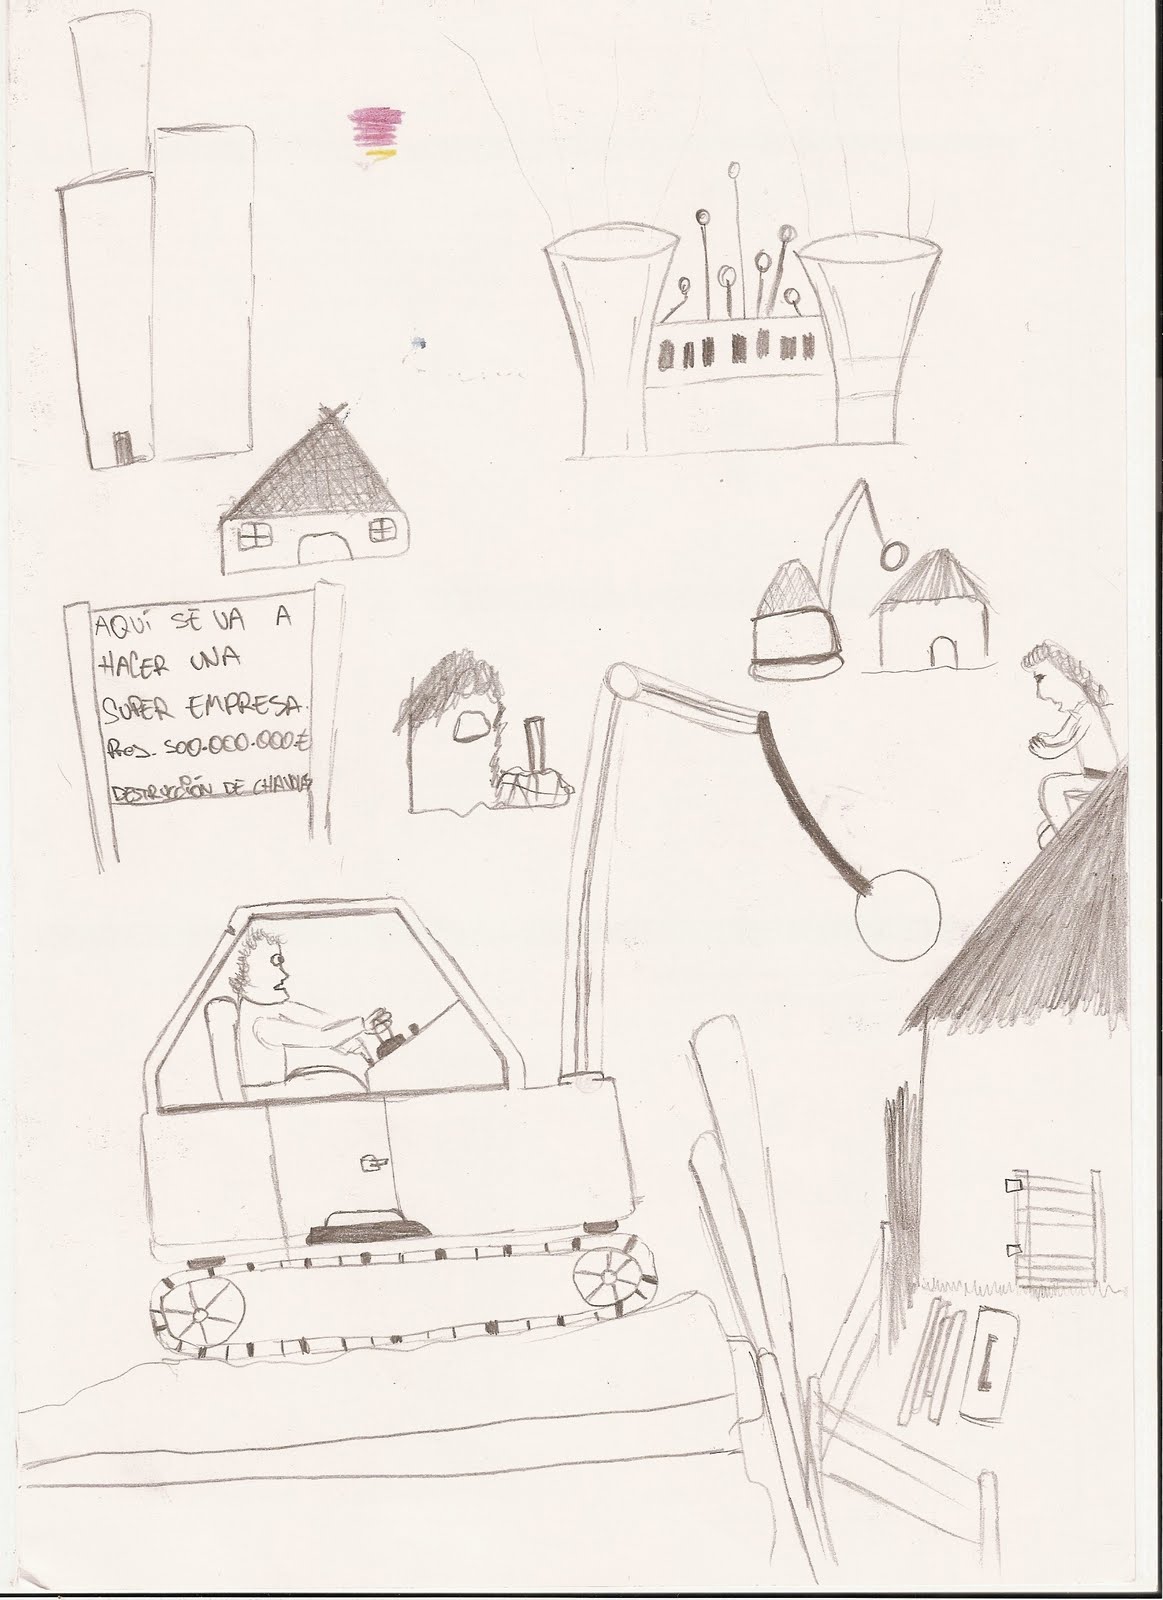 AQUÍ SE VA A
HACER UNA
SUPER EMPRESA.
Pres. 500.000.000€
DESTRUCCIÓN DE